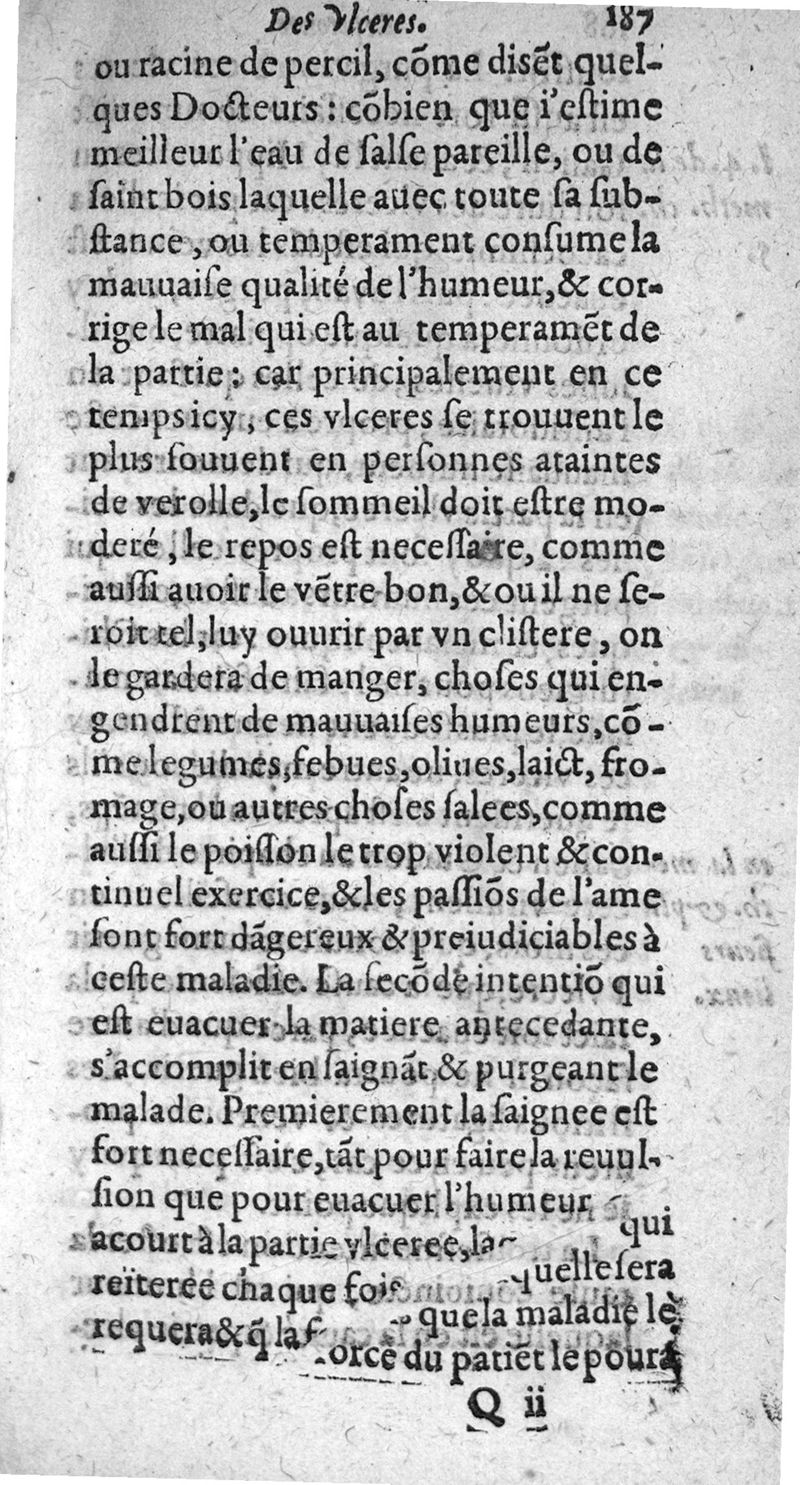 Des Vlceres. 187
ou racine de percil, cõme disẽt quel-
ques Docteurs : cõbien que i'estime
meilleur l'eau de salse pareille, ou de
saint bois laquelle auec toute sa sub-
stance, ou temperament consume la
mauuaise qualité de l'humeur, & cor-
rige le mal qui est au temperamẽt de
la partie: car principalement en ce
temps icy, ces vlceres se trouuent le
plus souuent en personnes ataintes
de verolle, le sommeil doit estre mo-
deré, le repos est necessaire, comme
aussi auoir le vẽtre bon, & ou il ne se-
roit tel, luy ouurir par vn clistere, on
le gardera de manger, choses qui en-
gendrent de mauuaises humeurs, cõ-
me legumes, febues, oliues, laict, fro-
mage, ou autres choses salees, comme
aussi le poisson le trop violent & con-
tinuel exercice, & les passiõs de l'ame
sont fort dãgereux & preiudiciables à
ceste maladie. La secõde intentiõ qui
est euacuer la matiere antecedante,
s'accomplit en saignãt & purgeant le
malade. Premierement la saignee est
fort necessaire, tãt pour faire la reuul-
sion que pour euacuer l'humeur qui
acourt à la partie vlceree, laquelle sera
reïteree chaque fois que la maladie le
requera & q̃ la force du patiẽt le poura
Q ii